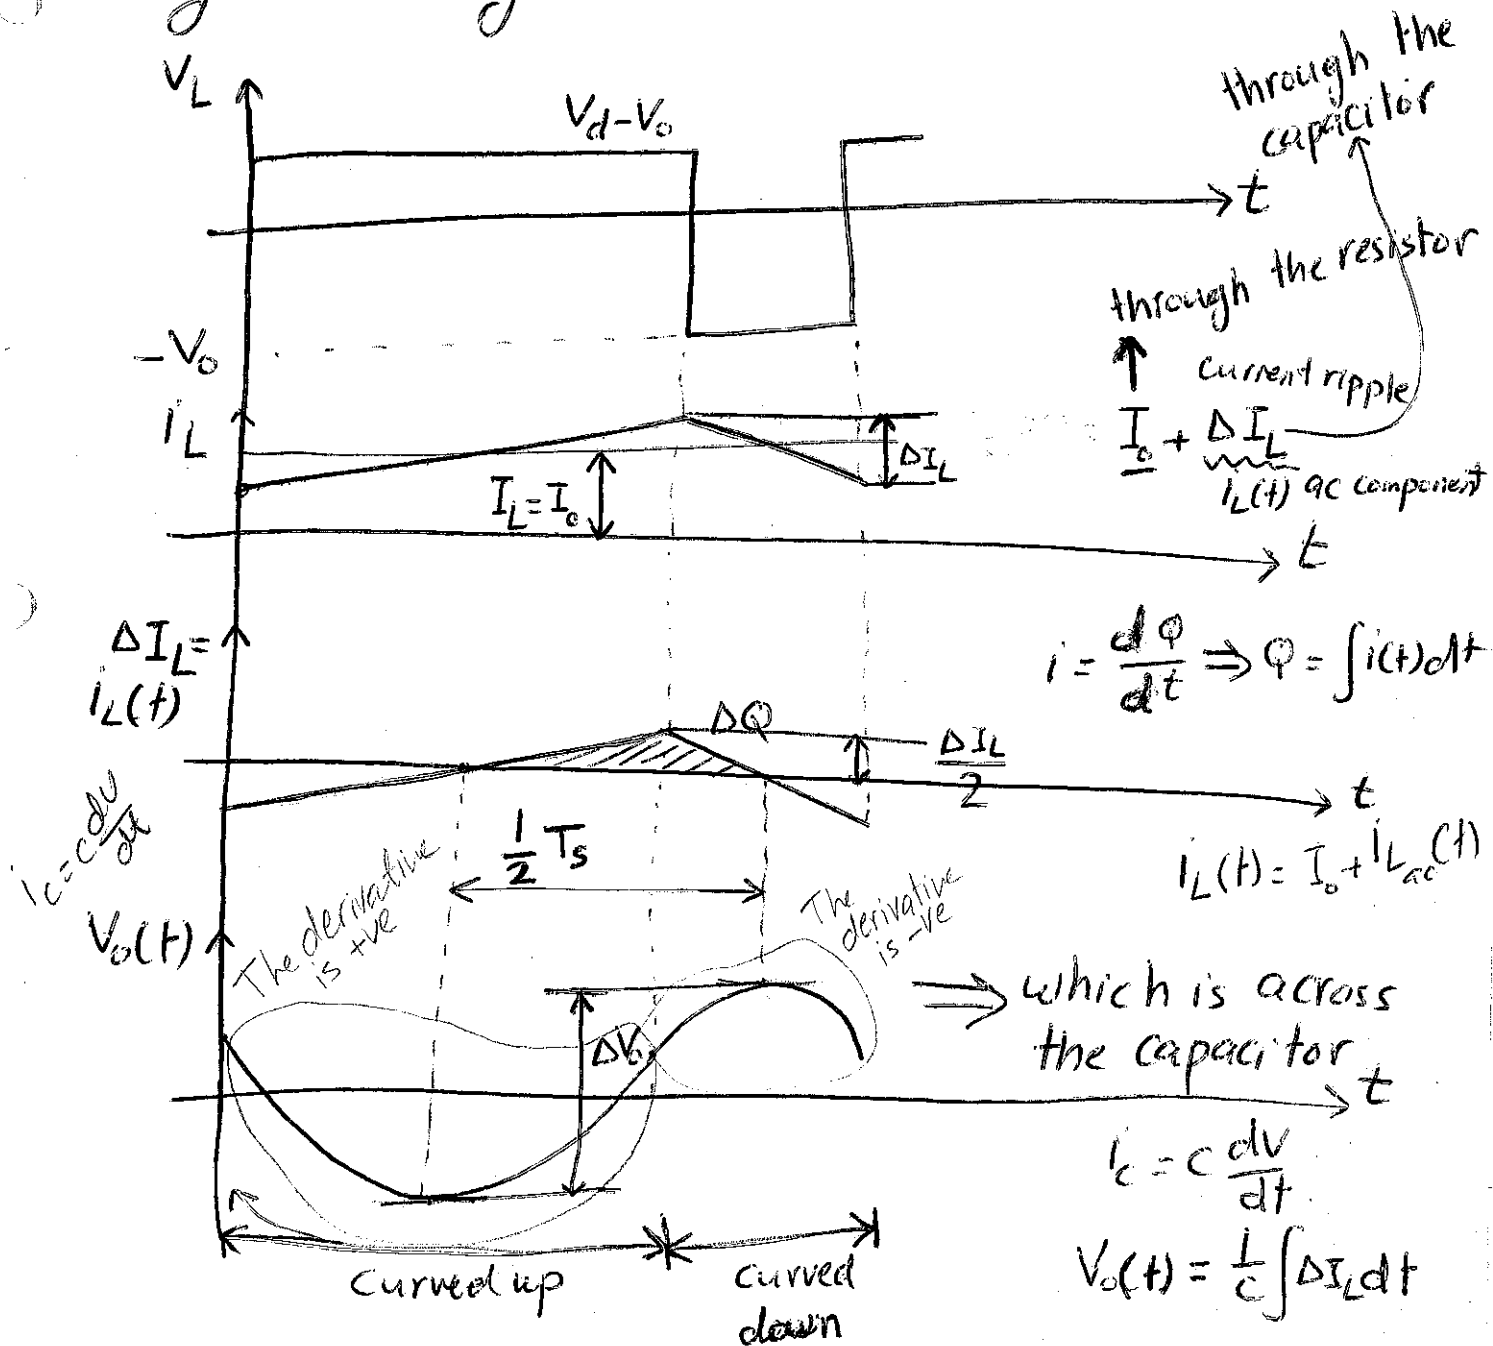 V_L
V_d-V_o
t
through the
capacitor
-V_o
through the resistor
current ripple
I_o + ΔI_L
i_L(t) ac component
i_L
I_L=I_o
ΔI_L
t
ΔI_L=
i_L(t)
i = dQ/dt ⇒ Q = ∫i(t)dt
ΔQ
ΔI_L/2
t
1/2 T_s
i_L(t) = I_o + i_Lac(t)
i_c = c dv/dt
V_o(t)
The derivative
is +ve
The
derivative
is -ve
ΔV_o
⇒ which is across
the capacitor
t
i_c = c dv/dt
V_o(t) = 1/c ∫ΔI_L dt
Curved up
curved
down